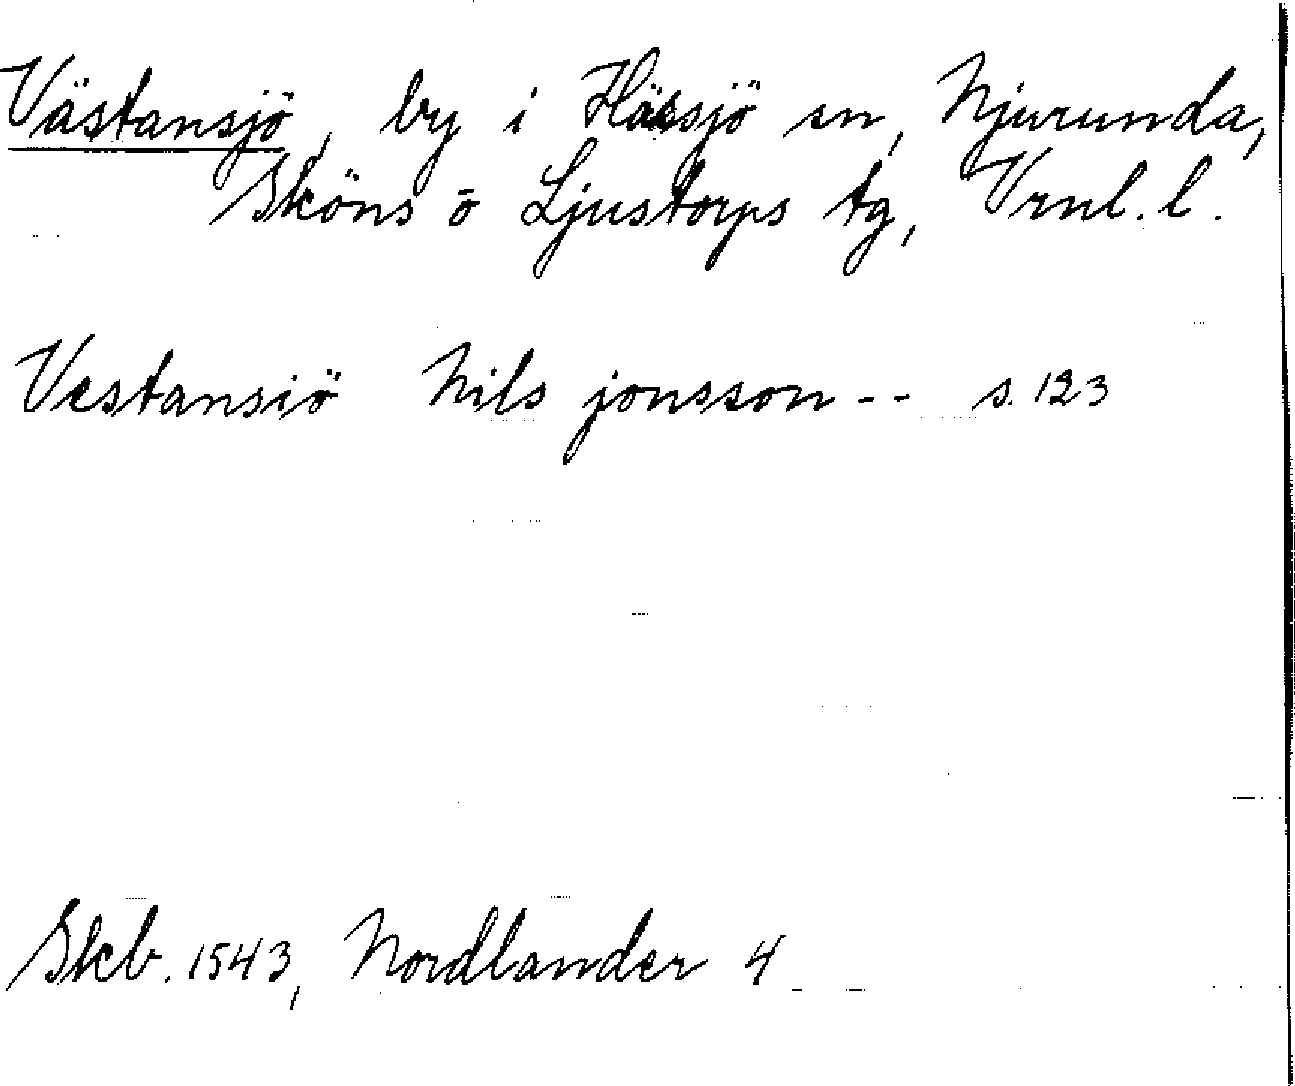 Västansjö, by i Hässjö sn, Njurunda,
Sköns o Ljustorps tg, Vrnl. l.
Vestansiö Nils jonsson -- s. 123
Skb. 1543, Nordlander 4